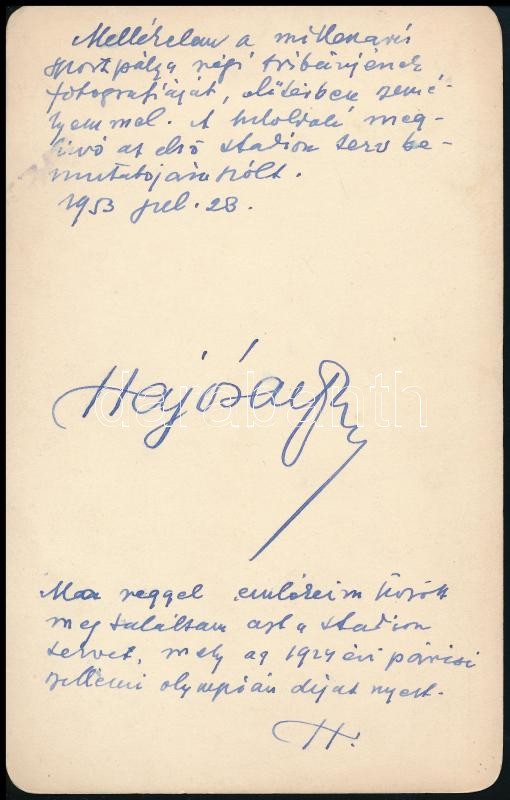 Mellékelem a millenáris
sportpálya régi tribünjének
fotografiáját, előtérben szemé-
lyemmel. A túloldali meg-
hívó az első stadion terv be-
mutatójára szólt.
1953 jul. 28.
Hajós
darabanth
Ma reggel emlékeim között
megtaláltam azt a stadion
tervet, mely az 1924 évi párisi
szellemi olympián díjat nyert.
H.